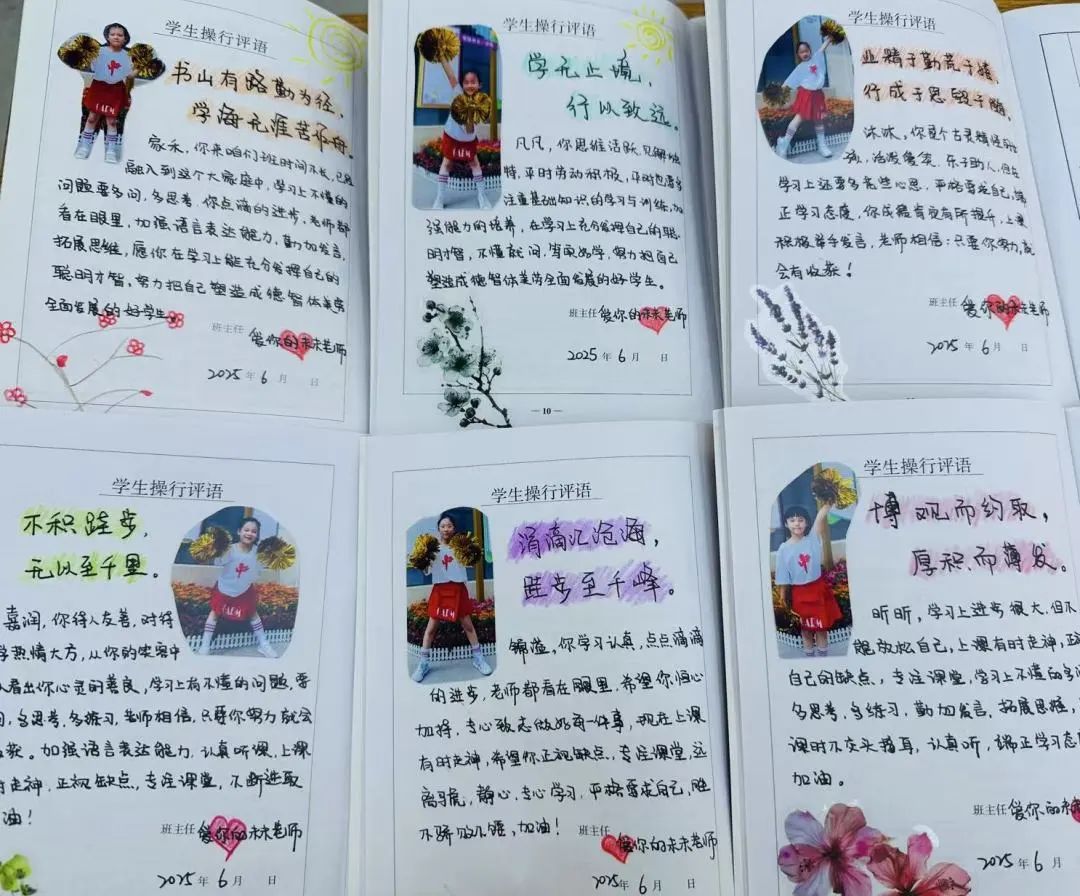 学生操行评语
书山有路勤为径，
学海无涯苦作舟。
家禾，你来咱们班时间不长，已经
融入到这个大家庭中，学习上不懂的
问题要多问，多思考，你点滴的进步，老师都
看在眼里，加强语言表达能力，勤加发言，
拓展思维，愿你在学习上能充分发挥自己的
聪明才智，努力把自己塑造成德智体美劳
全面发展的好学生。
班主任 爱你的未未老师
2025年6月 日
学生操行评语
学无止境，
行以致远。
凡凡，你思维活跃，见解独
特，平时劳动积极，平时也需多
注重基础知识的学习与训练，加
强能力的培养，在学习上充分发挥自己的聪
明才智，不懂就问，勤奋好学，努力把自己
塑造成德智体美劳全面发展的好学生。
班主任 爱你的未未老师
2025年6月 日
— 10 —
学生操行评语
业精于勤荒于嬉，
行成于思毁于随。
沐沐，你是个古灵精怪的
孩，活泼爱笑，乐于助人，但在
学习上还要多花些心思，严格要求自己，端
正学习态度，你成绩有变有所提升，上课
积极举手发言，老师相信：只要你努力，就
会有收获！
班主任 爱你的未未老师
2025年6月 日
学生操行评语
不积跬步，
无以至千里。
嘉润，你待人友善，对待
学热情大方，从你的笑容中
看出你心灵的善良，学习上有不懂的问题，要
问，多思考，多练习，老师相信，只要你努力就会
获。加强语言表达能力，认真听课，上课
时走神，正视缺点，专注课堂，不断进取
油！
班主任 爱你的未未老师
2025年6月 日
学生操行评语
涓滴汇沧海，
跬步至千峰。
锦溢，你学习认真，点点滴滴
的进步，老师都看在眼里，希望你恒心
加持，专心致志做好每一件事，现在上课
有时走神，希望你正视缺点，专注课堂，远
离马虎，静心，专心学习，严格要求自己，胜
不骄败不馁，加油！
班主任 爱你的未未老师
2025年6月 日
学生操行评语
博观而约取，
厚积而薄发。
昕昕，学习上进步很大，但不
能放松自己，上课有时走神，正
自己的缺点，专注课堂，学习上不懂的多问
多思考，多练习，勤加发言，拓展思维，
课时不交头接耳，认真听，端正学习态度
加油。
班主任 爱你的未未
2025年6月